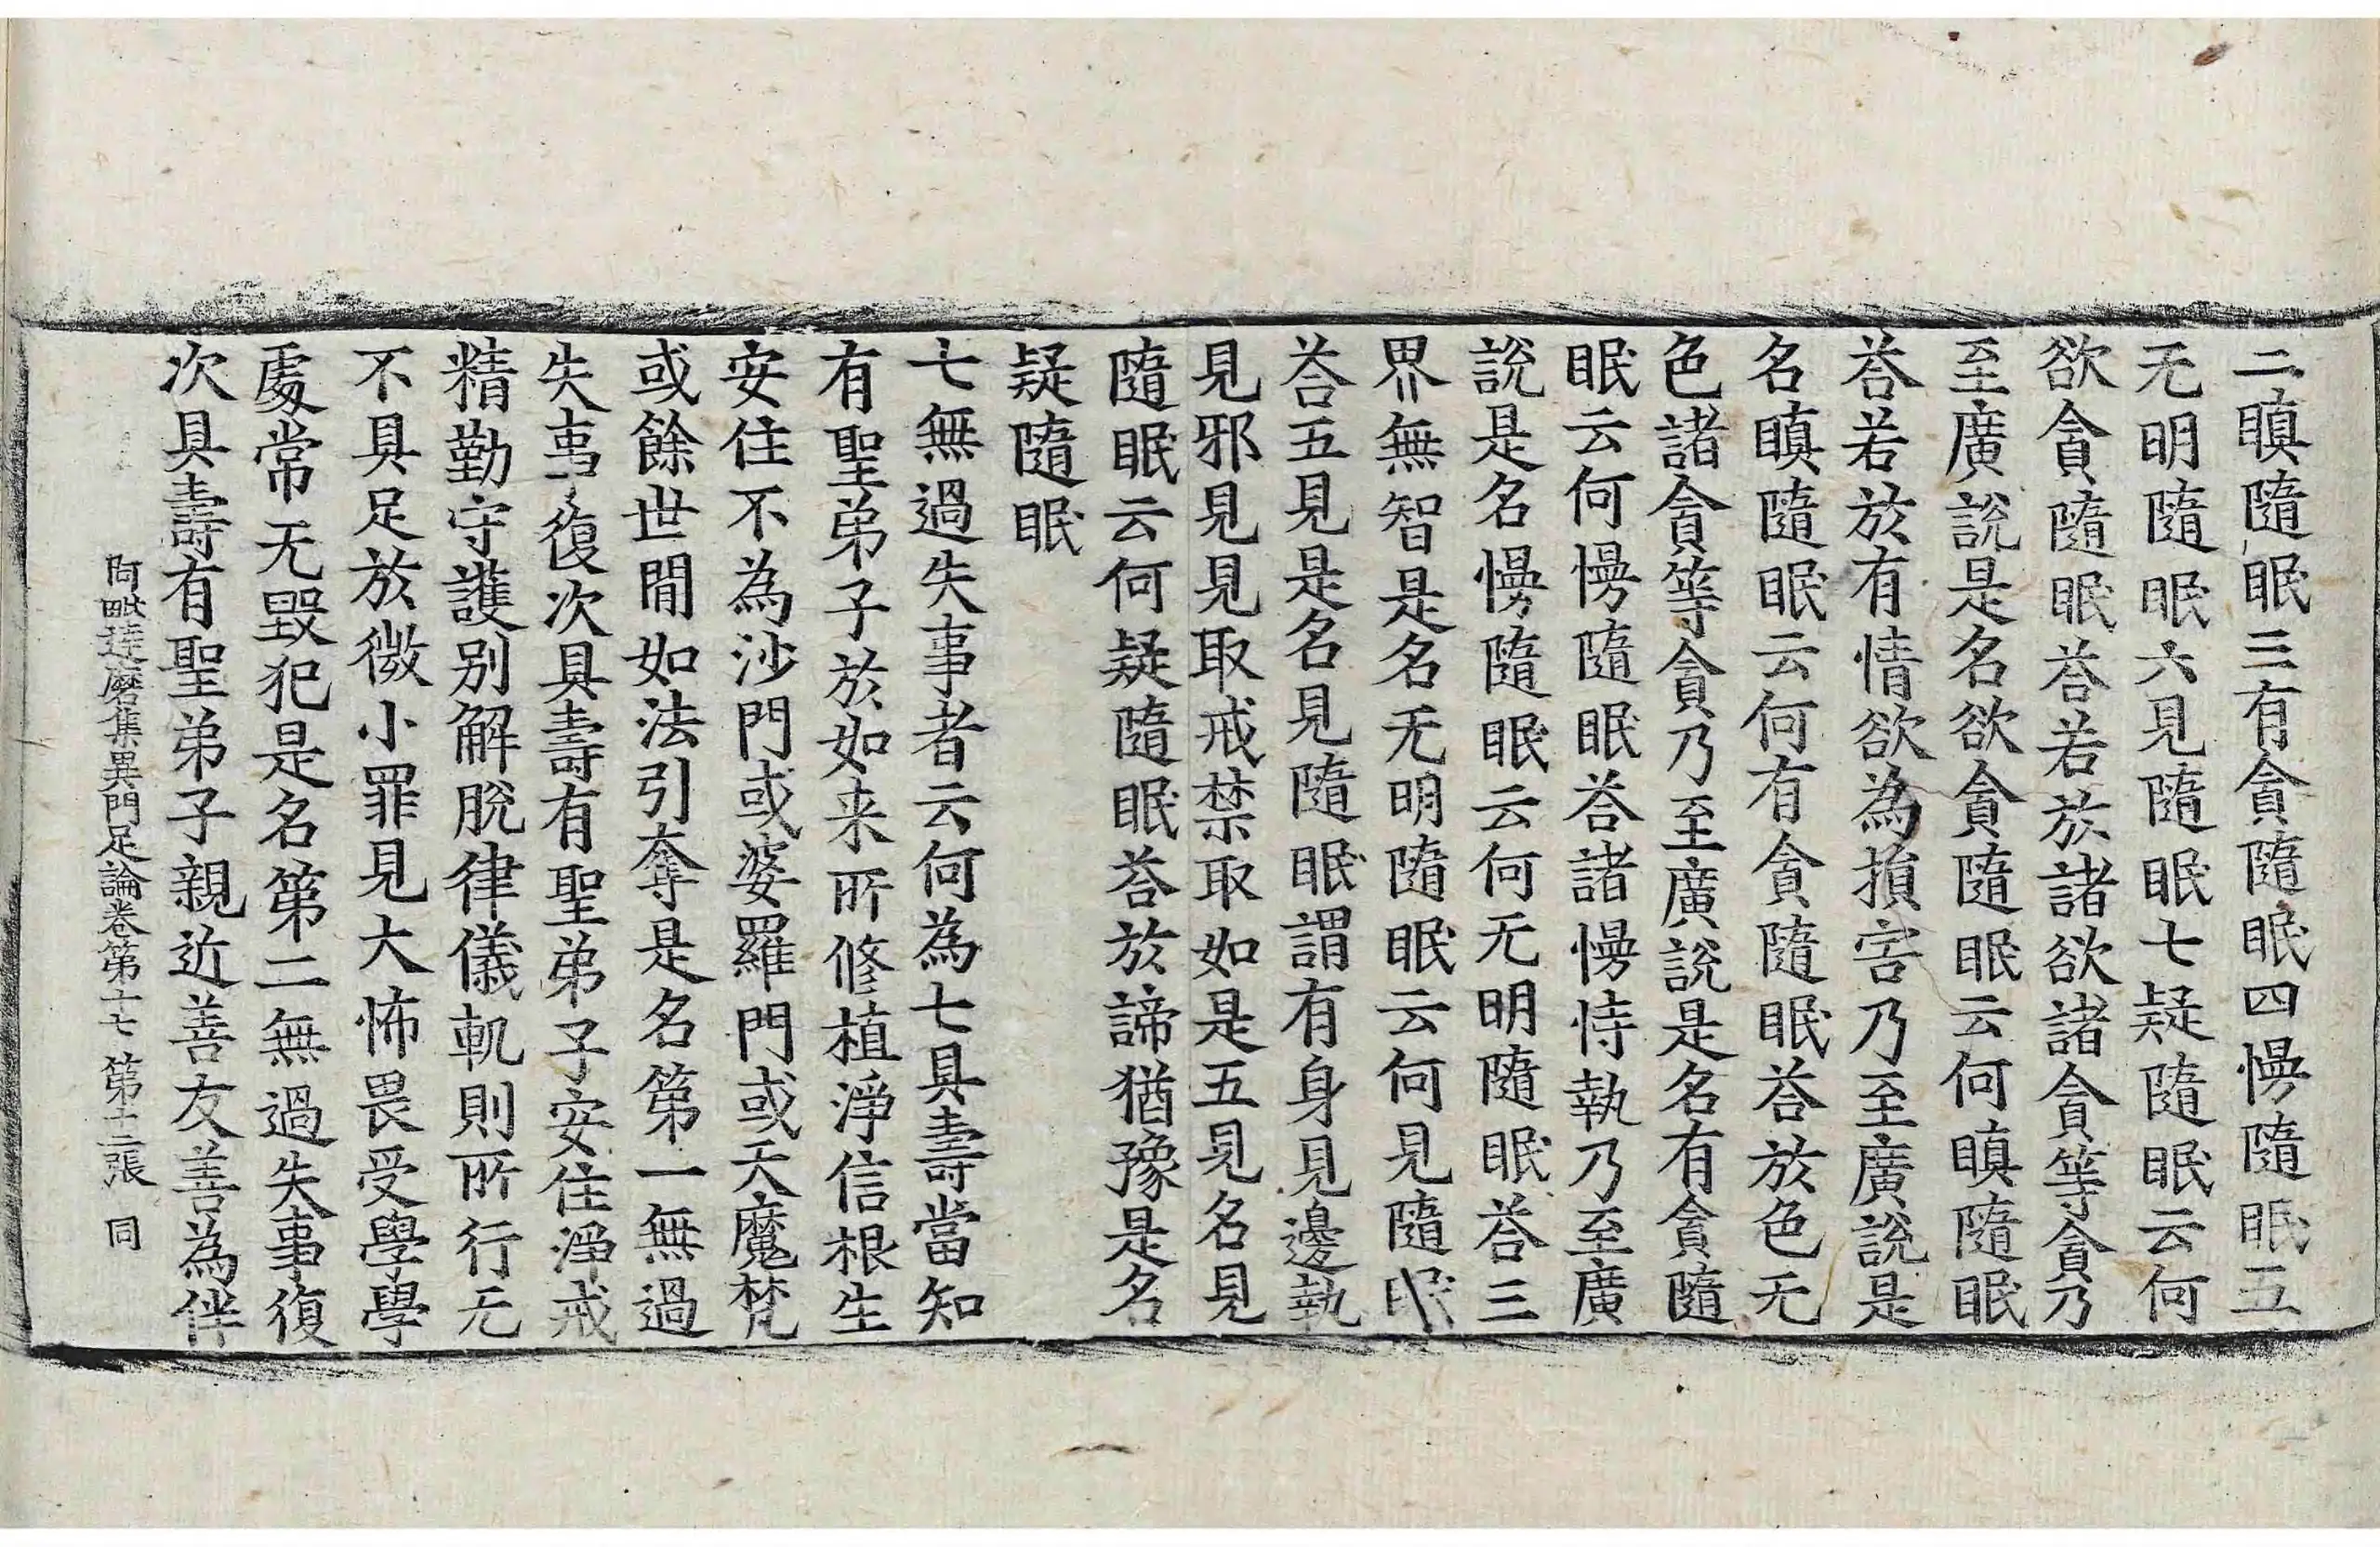 二瞋隨眠三有貪隨眠四慢隨眠五
无明隨眠六見隨眠七疑隨眠云何
欲貪隨眠荅若於諸欲諸貪等貪乃
至廣說是名欲貪隨眠云何瞋隨眠
荅若於有情欲為損害乃至廣說是
名瞋隨眠云何有貪隨眠荅於色无
色諸貪等貪乃至廣說是名有貪隨
眠云何慢隨眠荅諸慢恃執乃至廣
說是名慢隨眠云何无明隨眠荅三
界無智是名无明隨眠云何見隨眠
荅五見是名見隨眠謂有身見邊執
見邪見見取戒禁取如是五見名見
隨眠云何疑隨眠荅於諦猶豫是名
疑隨眠
七無過失事者云何為七具壽當知
有聖弟子於如来所修植淨信根生
安住不為沙門或婆羅門或天魔梵
或餘世間如法引奪是名第一無過
失事復次具壽有聖弟子安住淨戒
精勤守護別解脫律儀軌則所行无
不具足於微小罪見大怖畏受學學
處常无毀犯是名第二無過失事復
次具壽有聖弟子親近善友善為伴
阿毗達磨集異門足論卷第十七 第十二張 同